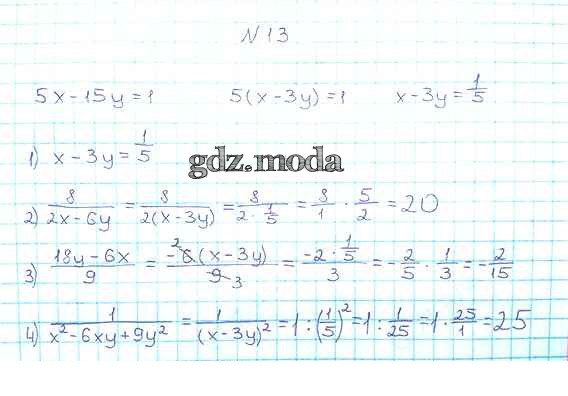 N 13
5x - 15y = 1 5(x - 3y) = 1 x - 3y = 1/5
1) x - 3y = 1/5
gdz.moda
2) 8/(2x - 6y) = 8/(2(x - 3y)) = 8/(2 · 1/5) = 8/1 · 5/2 = 20
3) (18y - 6x)/9 = (-6(x - 3y))/9 2 3 = (-2 · 1/5)/3 = -2/5 · 1/3 = -2/15
4) 1/(x² - 6xy + 9y²) = 1/(x - 3y)² = 1 : (1/5)² = 1 : 1/25 = 1 · 25/1 = 25